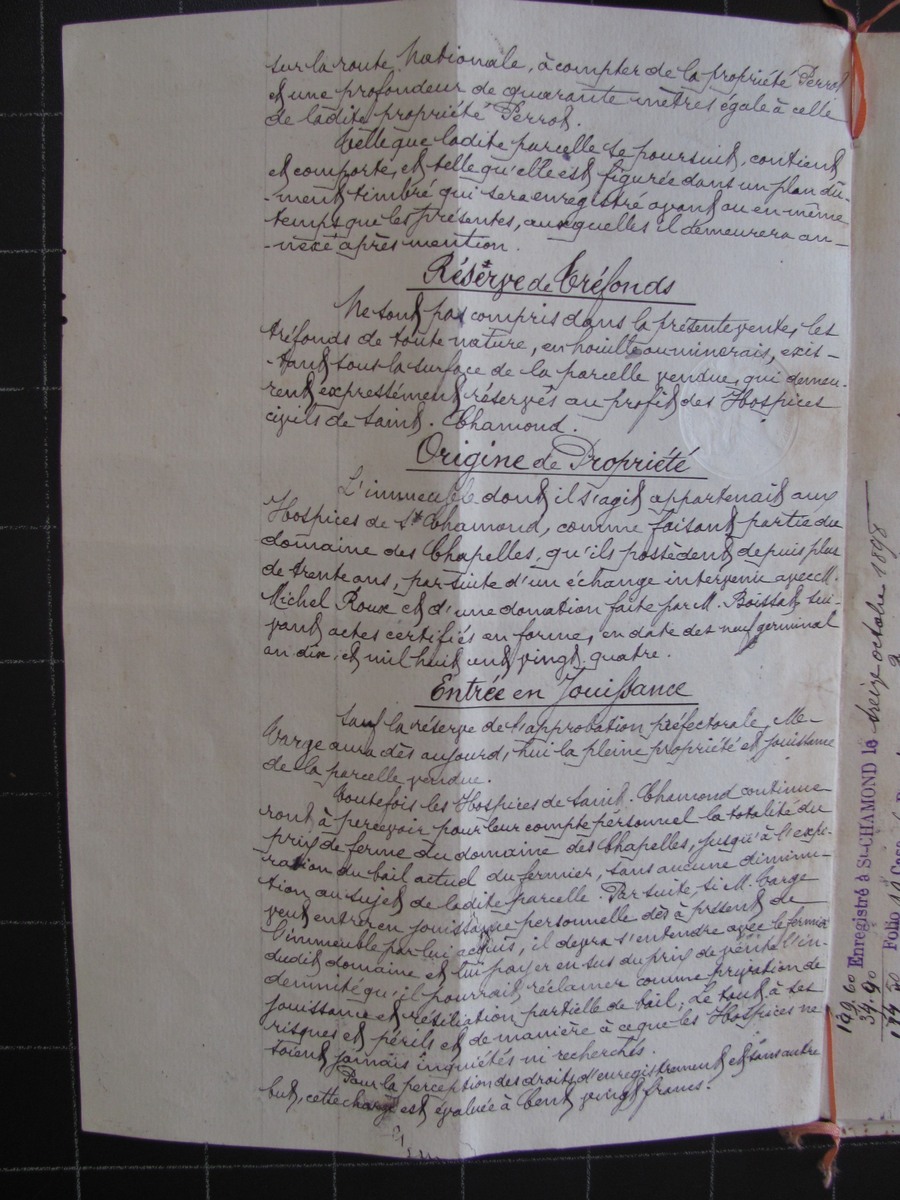 sur la route Nationale, à compter de la propriété Perrot
et une profondeur de quarante mètres égale à celle
de ladite propriété Perrot.
Telle que ladite parcelle se poursuit, contient
et comporte, et telle qu'elle est figurée dans un plan dû-
-ment timbré qui sera enregistré avant ou en même
temps que les présentes, auxquelles il demeurera an-
-nexé après mention.
Réserve de Tréfonds
Ne sont pas compris dans la présente vente, les
tréfonds de toute nature, en houille ou minerais, exis-
-tant sous la surface de la parcelle vendue, qui demeu-
rent expressément réservés au profit des Hospices
civils de Saint-Chamond.
Origine de Propriété
L'immeuble dont il s'agit appartenait aux
Hospices de St Chamond, comme faisant partie du
domaine des Chapelles, qu'ils possèdent depuis plus
de trente ans, par suite d'un échange intervenu avec M.
Michel Roux et d'une donation faite par M. Boissat, sui-
vant actes certifiés en forme, en date des neuf germinal
an dix, et mil huit cent vingt-quatre.
Entrée en Jouissance
Sauf la réserve de l'approbation préfectorale, Mr
Varge aura dès aujourd'hui la pleine propriété et jouissance
de la parcelle vendue.
Toutefois les Hospices de Saint-Chamond continue
ront à percevoir pour leur compte personnel la totalité du
prix de ferme du domaine des Chapelles, jusqu'à l'expi-
ration du bail actuel du fermier, sans aucune diminu-
tion au sujet de ladite parcelle. Par suite, si M. Varge
veut entrer en jouissance personnelle dès à présent de
l'immeuble par lui acquis, il devra s'entendre avec le fermier
dudit domaine et lui payer en sus du prix de vente l'in-
demnité qu'il pourrait réclamer comme privation de
jouissance et résiliation partielle de bail; Le tout à ses
risques et périls et de manière à ce que les Hospices ne
soient jamais inquiétés ni recherchés.
Pour la perception des droits d'enregistrement et sans autre
but, cette charge est évaluée à Cent vingt francs.
Enregistré à St-CHAMOND le treize octobre 1898
Folio